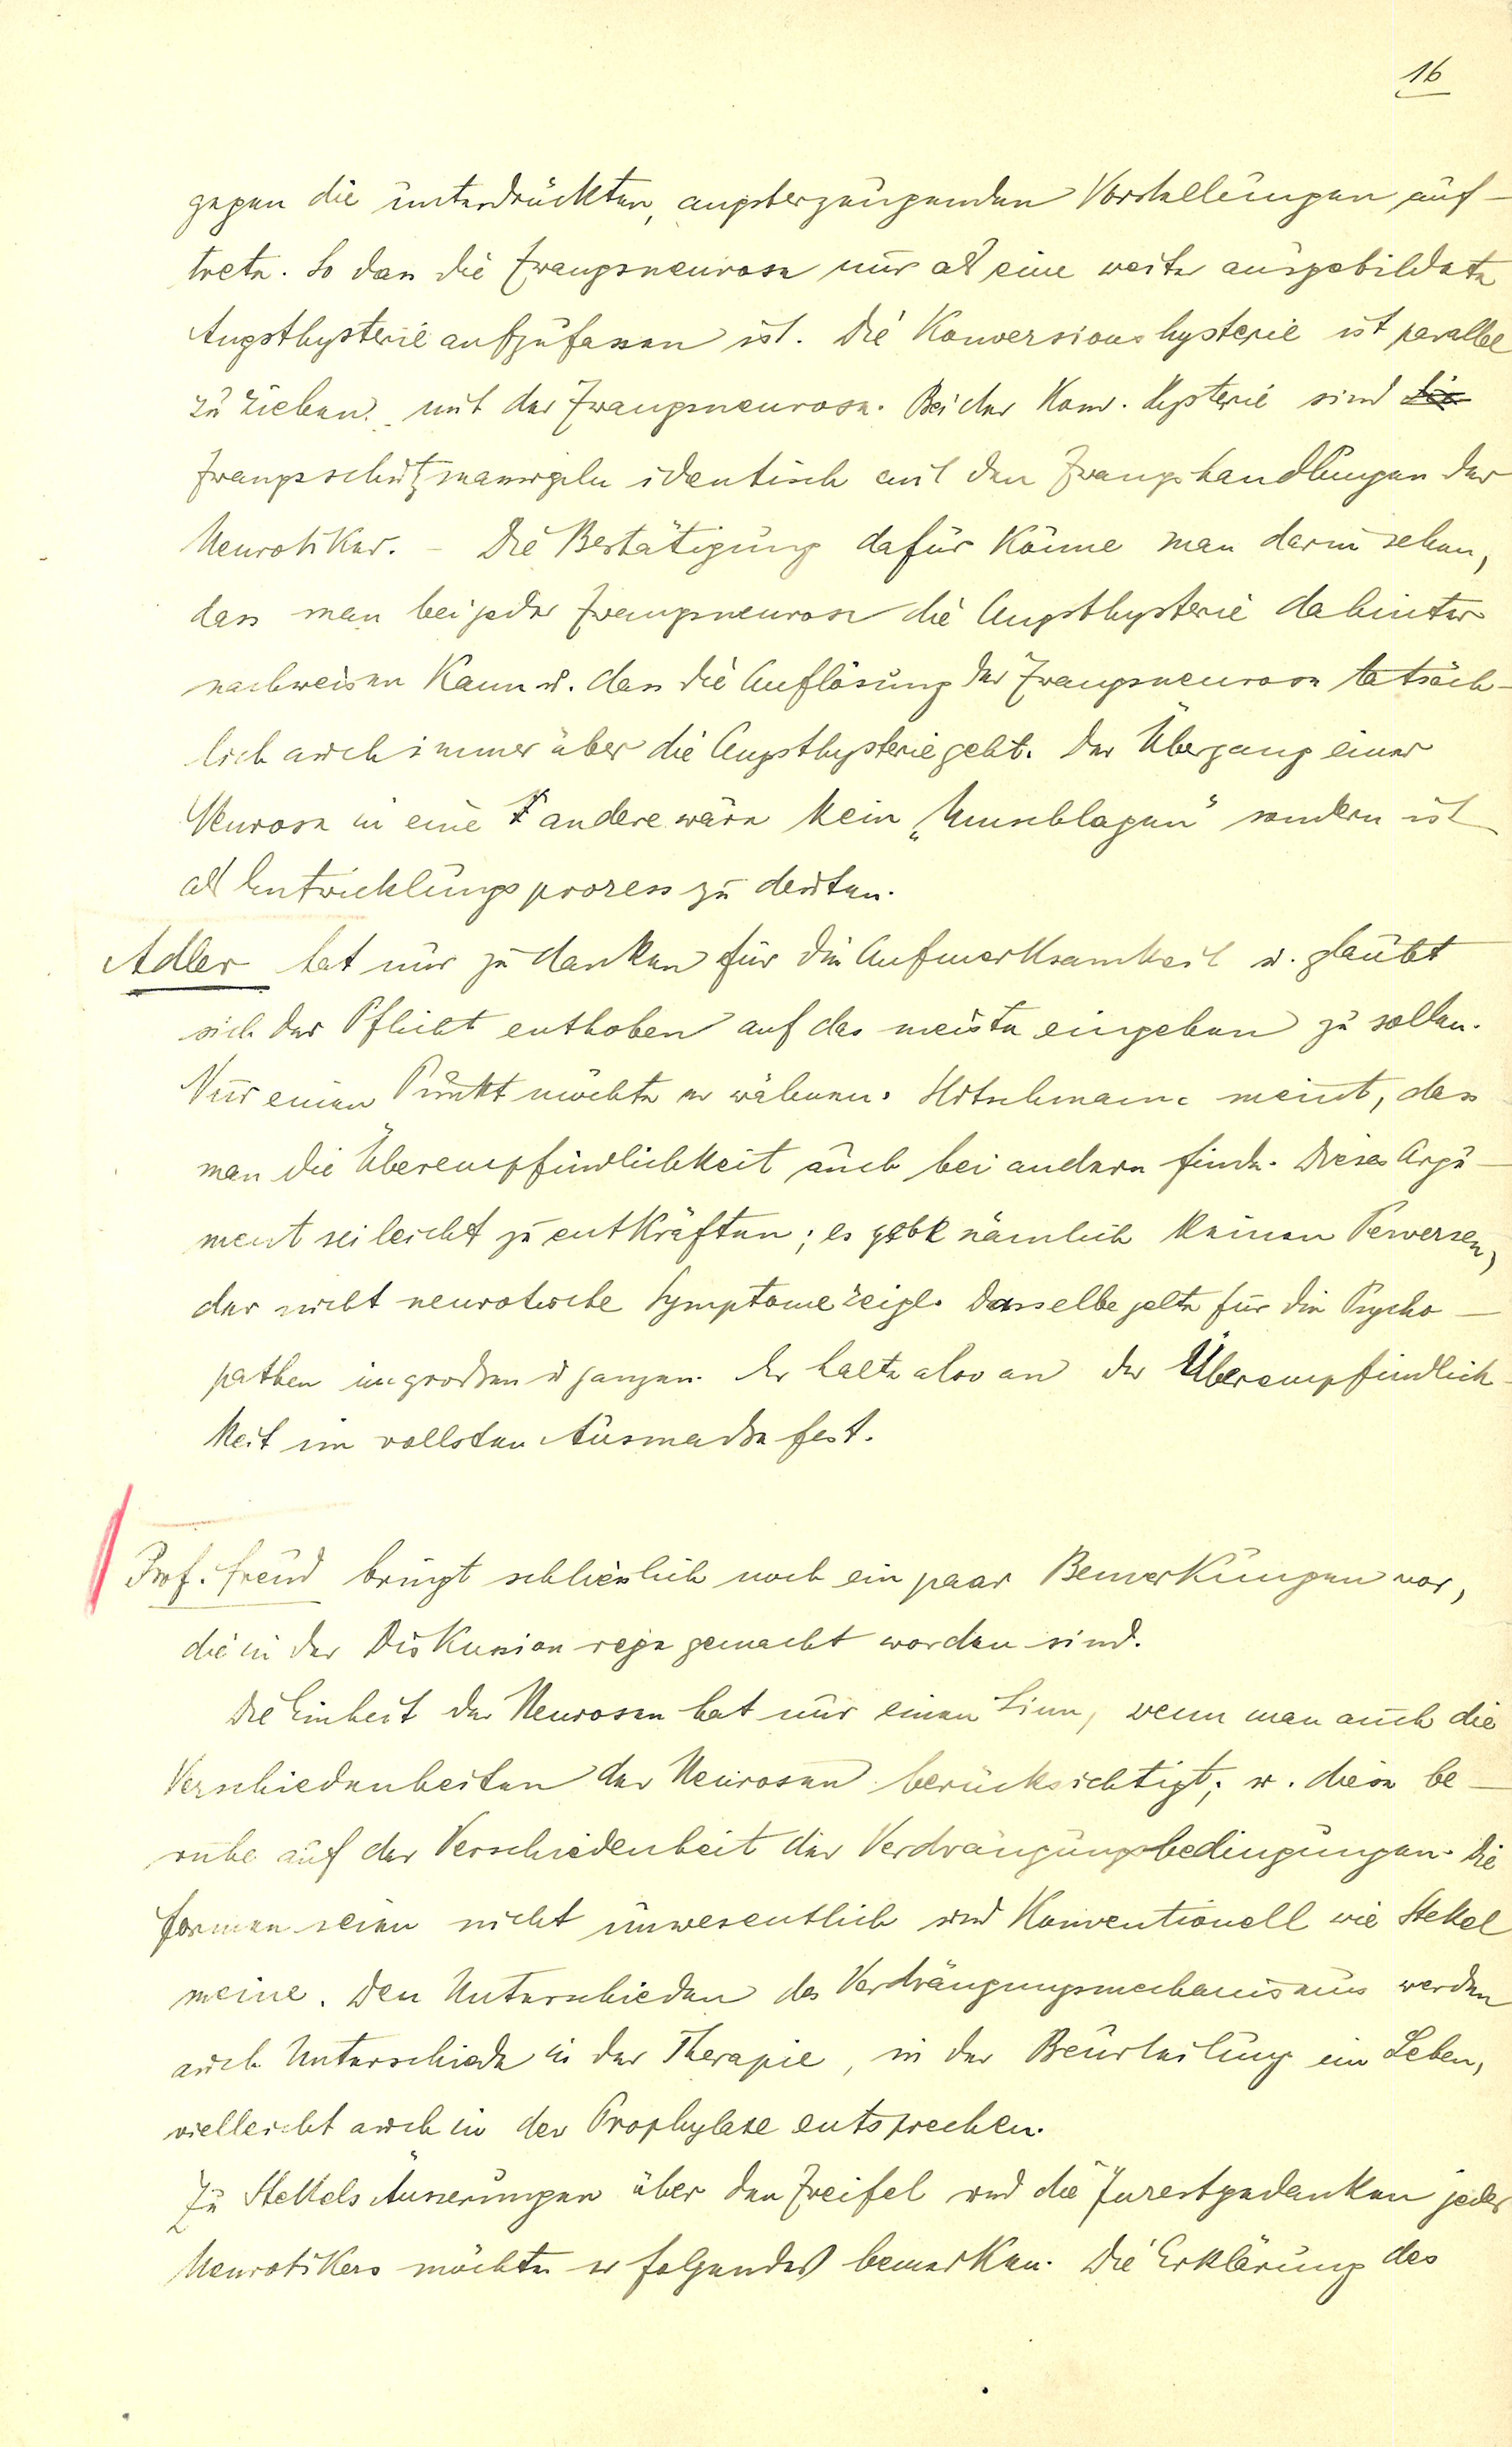 16
gegen die unterdrückten, angsterzeugenden Vorstellungen auf-
trete. So dass die Zwangsneurose nur als eine weiter ausgebildete
Angsthysterie aufzufassen ist. Die Konversionshysterie ist parallel
zu ziehen mit der Zwangsneurose. Bei der Konv. Hysterie sind die
Zwangsschutzmassregeln identisch mit den Zwangshandlungen der
Neurotiker. – Die Bestätigung dafür könne man darin sehen,
dass man bei jeder Zwangsneurose die Angsthysterie dahinter
nachweisen kann u. dass die Auflösung der Zwangsneurose tatsäch-
lich auch immer über die Angsthysterie geht. Der Übergang einer
Neurose in eine andere wäre kein „Umschlagen" sondern ist
als Entwicklungsprozess zu deuten.
Adler hat nur zu danken für die Aufmerksamkeit u. glaubt
sich der Pflicht enthoben auf das meiste eingehen zu sollen.
Nur einen Punkt möchte er wähnen. Hitschmann meint, dass
man die Überempfindlichkeit auch bei andern finde. Dieses Argu-
ment sei leicht zu entkräften; es gebe nämlich keinen Perversen,
der nicht neurotische Symptome zeige. Dasselbe gelte für die Psycho-
pathen im großen u ganzen. Er halte also an der Überempfindlich-
keit im vollsten Ausmaße fest.
Prof. Freud bringt schliesslich noch ein paar Bemerkungen vor,
die in der Diskussion rege gemacht worden sind.
Die Einheit der Neurosen hat nur einen Sinn, wenn man auch die
Verschiedenheiten der Neurosen berücksichtigt; u. diese be-
ruhe auf der Verschiedenheit der Verdrängungsbedingungen. Die
Formen seien nicht unwesentlich und konventionell wie Stekel
meine. Den Unterschieden des Verdrängungsmechanismus werden
auch Unterschiede in der Therapie, in der Beurteilung im Leben,
vielleicht auch in der Prophylaxe entsprechen.
Zu Stekels Äusserungen über den Zweifel und die Inzestgedanken jedes
Neurotikers möchte er folgendes bemerken. Die Erklärung des